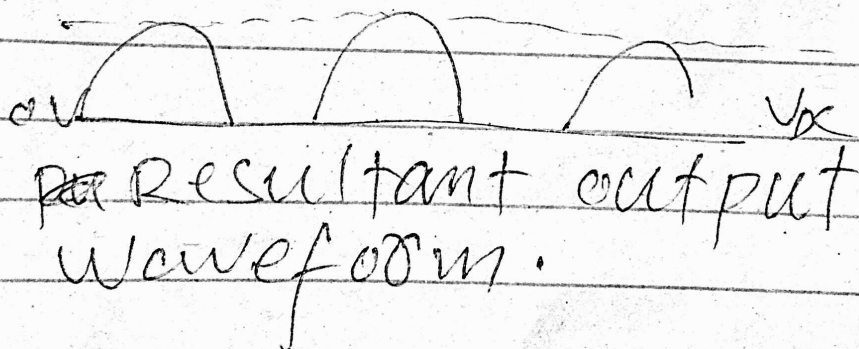 0V VDC
Resultant output
Waveform.